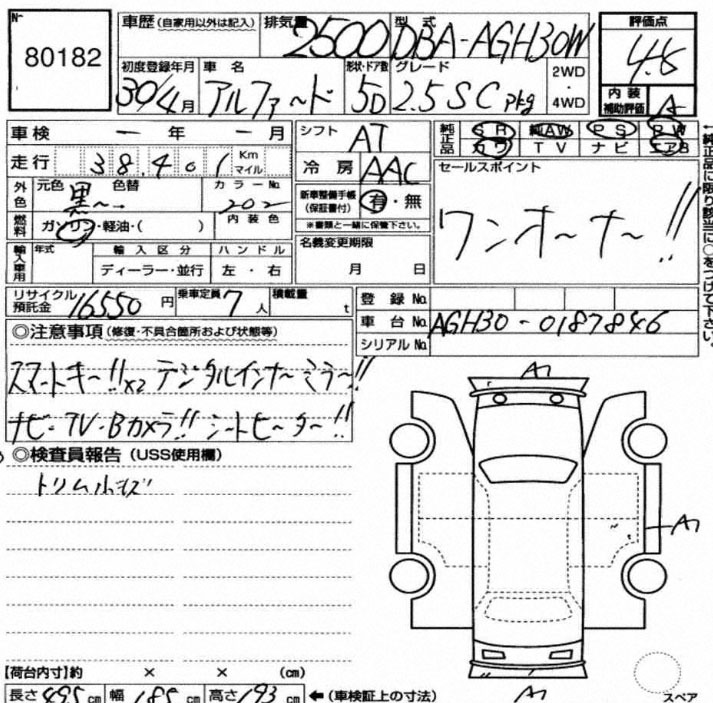 No.
80182
車歴(自家用以外は記入) 排気量 2500 型式 DBA-AGH30W
評価点 4.5
初度登録年月 30/4月 車名 アルファード 形状・ドア数 5D グレード 2.5 S C pkg 2WD・4WD
内装補助評価 A
車検 ー 年 ー 月 シフト AT
純正品 SR 純AW PS PW
カワ TV ナビ エアB
走行 38,401 Km マイル 冷房 AAC
セールスポイント
ワンオーナー!!
外色 元色 黒 色替 カラーNo. 202
新車整備手帳(保証書付) 有・無
※書類と一緒に保管下さい。
燃料 ガソリン・軽油・( ) 内装色
名義変更期限
月 日
輸入車用 年式 輸入区分 ハンドル
ディーラー・並行 左・右
リサイクル預託金 16550円 乗車定員 7人 積載量 t
登録No.
車台No. AGH30-0187846
シリアルNo.
◎注意事項(修復・不具合箇所および状態等)
スマートキー!!×2 デジタルインナーミラー!!
ナビ・TV・Bカメラ!! シートヒーター!!
◎検査員報告(USS使用欄)
トリム小キズ
←純正品に限り該当に○をつけて下さい。
A1
A1
A1
スペア
【荷台内寸】約 × × (cm)
長さ 495cm 幅 185cm 高さ 193cm ←(車検証上の寸法)